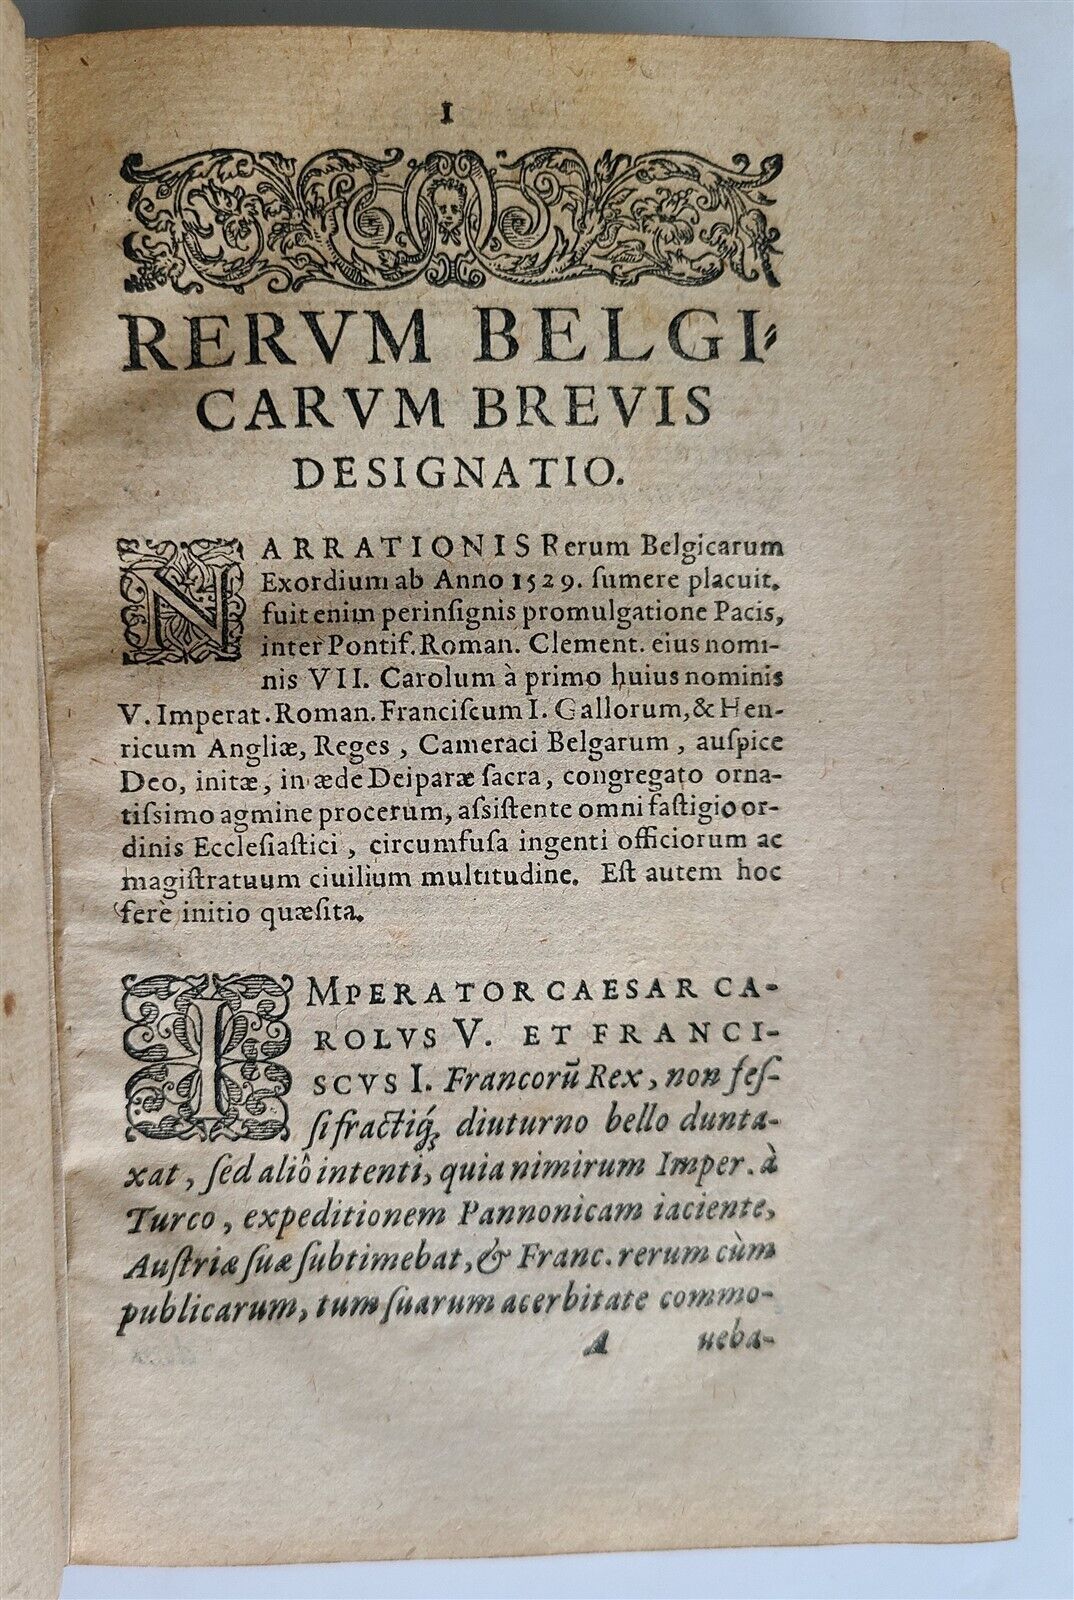 I
RERVM BELGI-
CARVM BREVIS
DESIGNATIO.
NARRATIONIS Rerum Belgicarum
Exordium ab Anno 1529. ſumere placuit.
fuit enim perinſignis promulgatione Pacis,
inter Pontif. Roman. Clement. eius nomi-
nis VII. Carolum à primo huius nominis
V. Imperat. Roman. Franciſcum I. Gallorum, & Hen-
ricum Angliæ, Reges, Cameraci Belgarum, auſpice
Deo, initæ, in æde Deiparæ ſacra, congregato orna-
tiſsimo agmine procerum, aſsiſtente omni faſtigio or-
dinis Eccleſiaſtici, circumfuſa ingenti officiorum ac
magiſtratuum ciuilium multitudine. Eſt autem hoc
ferè initio quæſita.
IMPERATOR CAESAR CA-
ROLVS V. ET FRANCI-
SCVS I. Francorũ Rex, non feſ-
ſi fractiq́; diuturno bello dunta-
xat, ſed aliò intenti, quia nimirum Imper. à
Turco, expeditionem Pannonicam iaciente,
Auſtriæ ſuæ ſubtimebat, & Franc. rerum cùm
publicarum, tum ſuarum acerbitate commo-
A ueba-